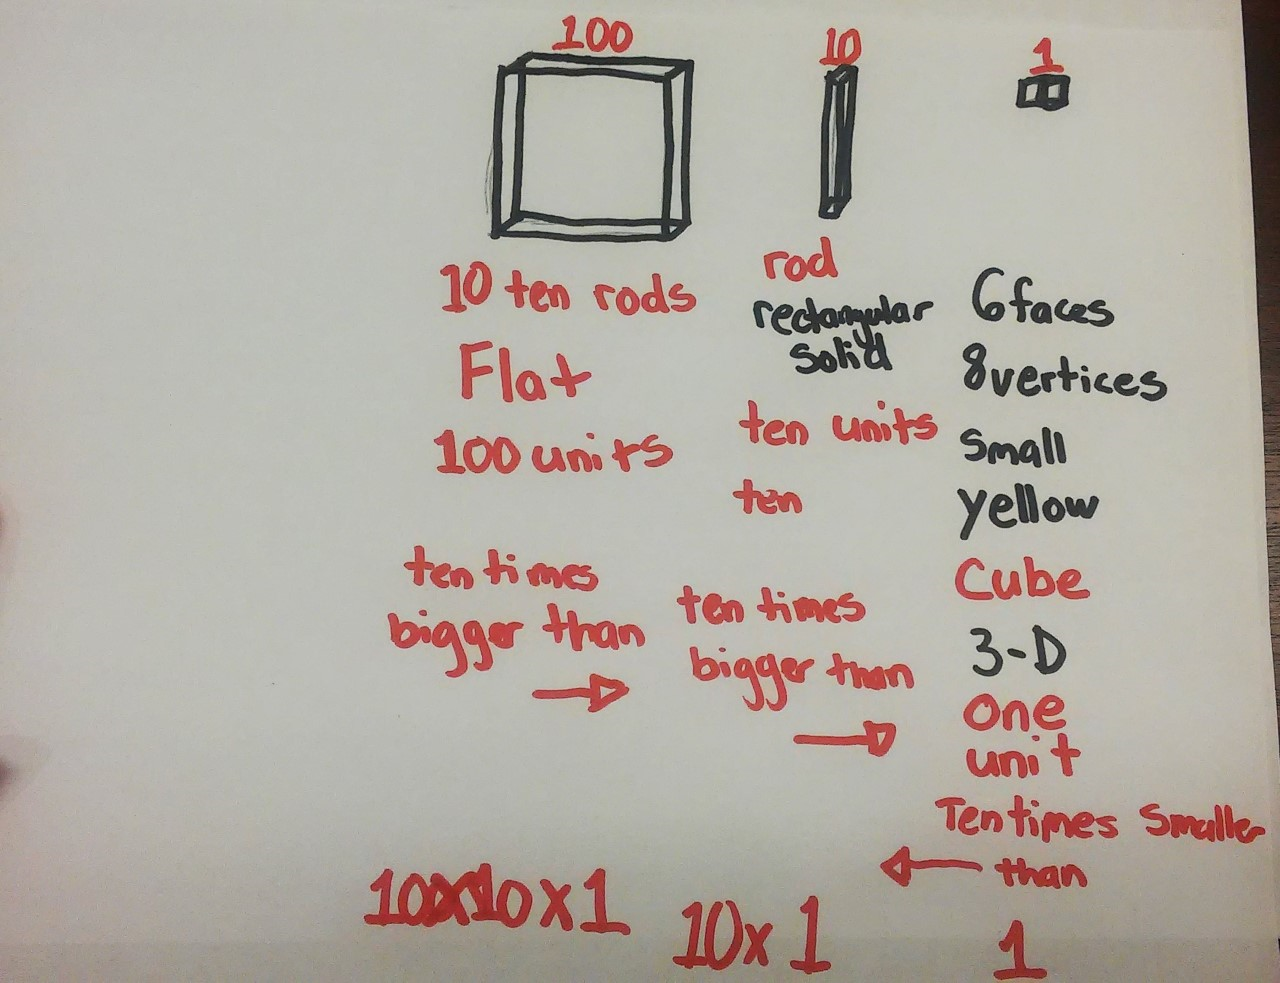 100
10 ten rods
Flat
100 units
ten times
bigger than
10x10x1
10
rod
rectangular
solid
ten units
ten
ten times
bigger than
10x1
1
6 faces
8 vertices
small
yellow
Cube
3-D
one
unit
Ten times smaller
than
1